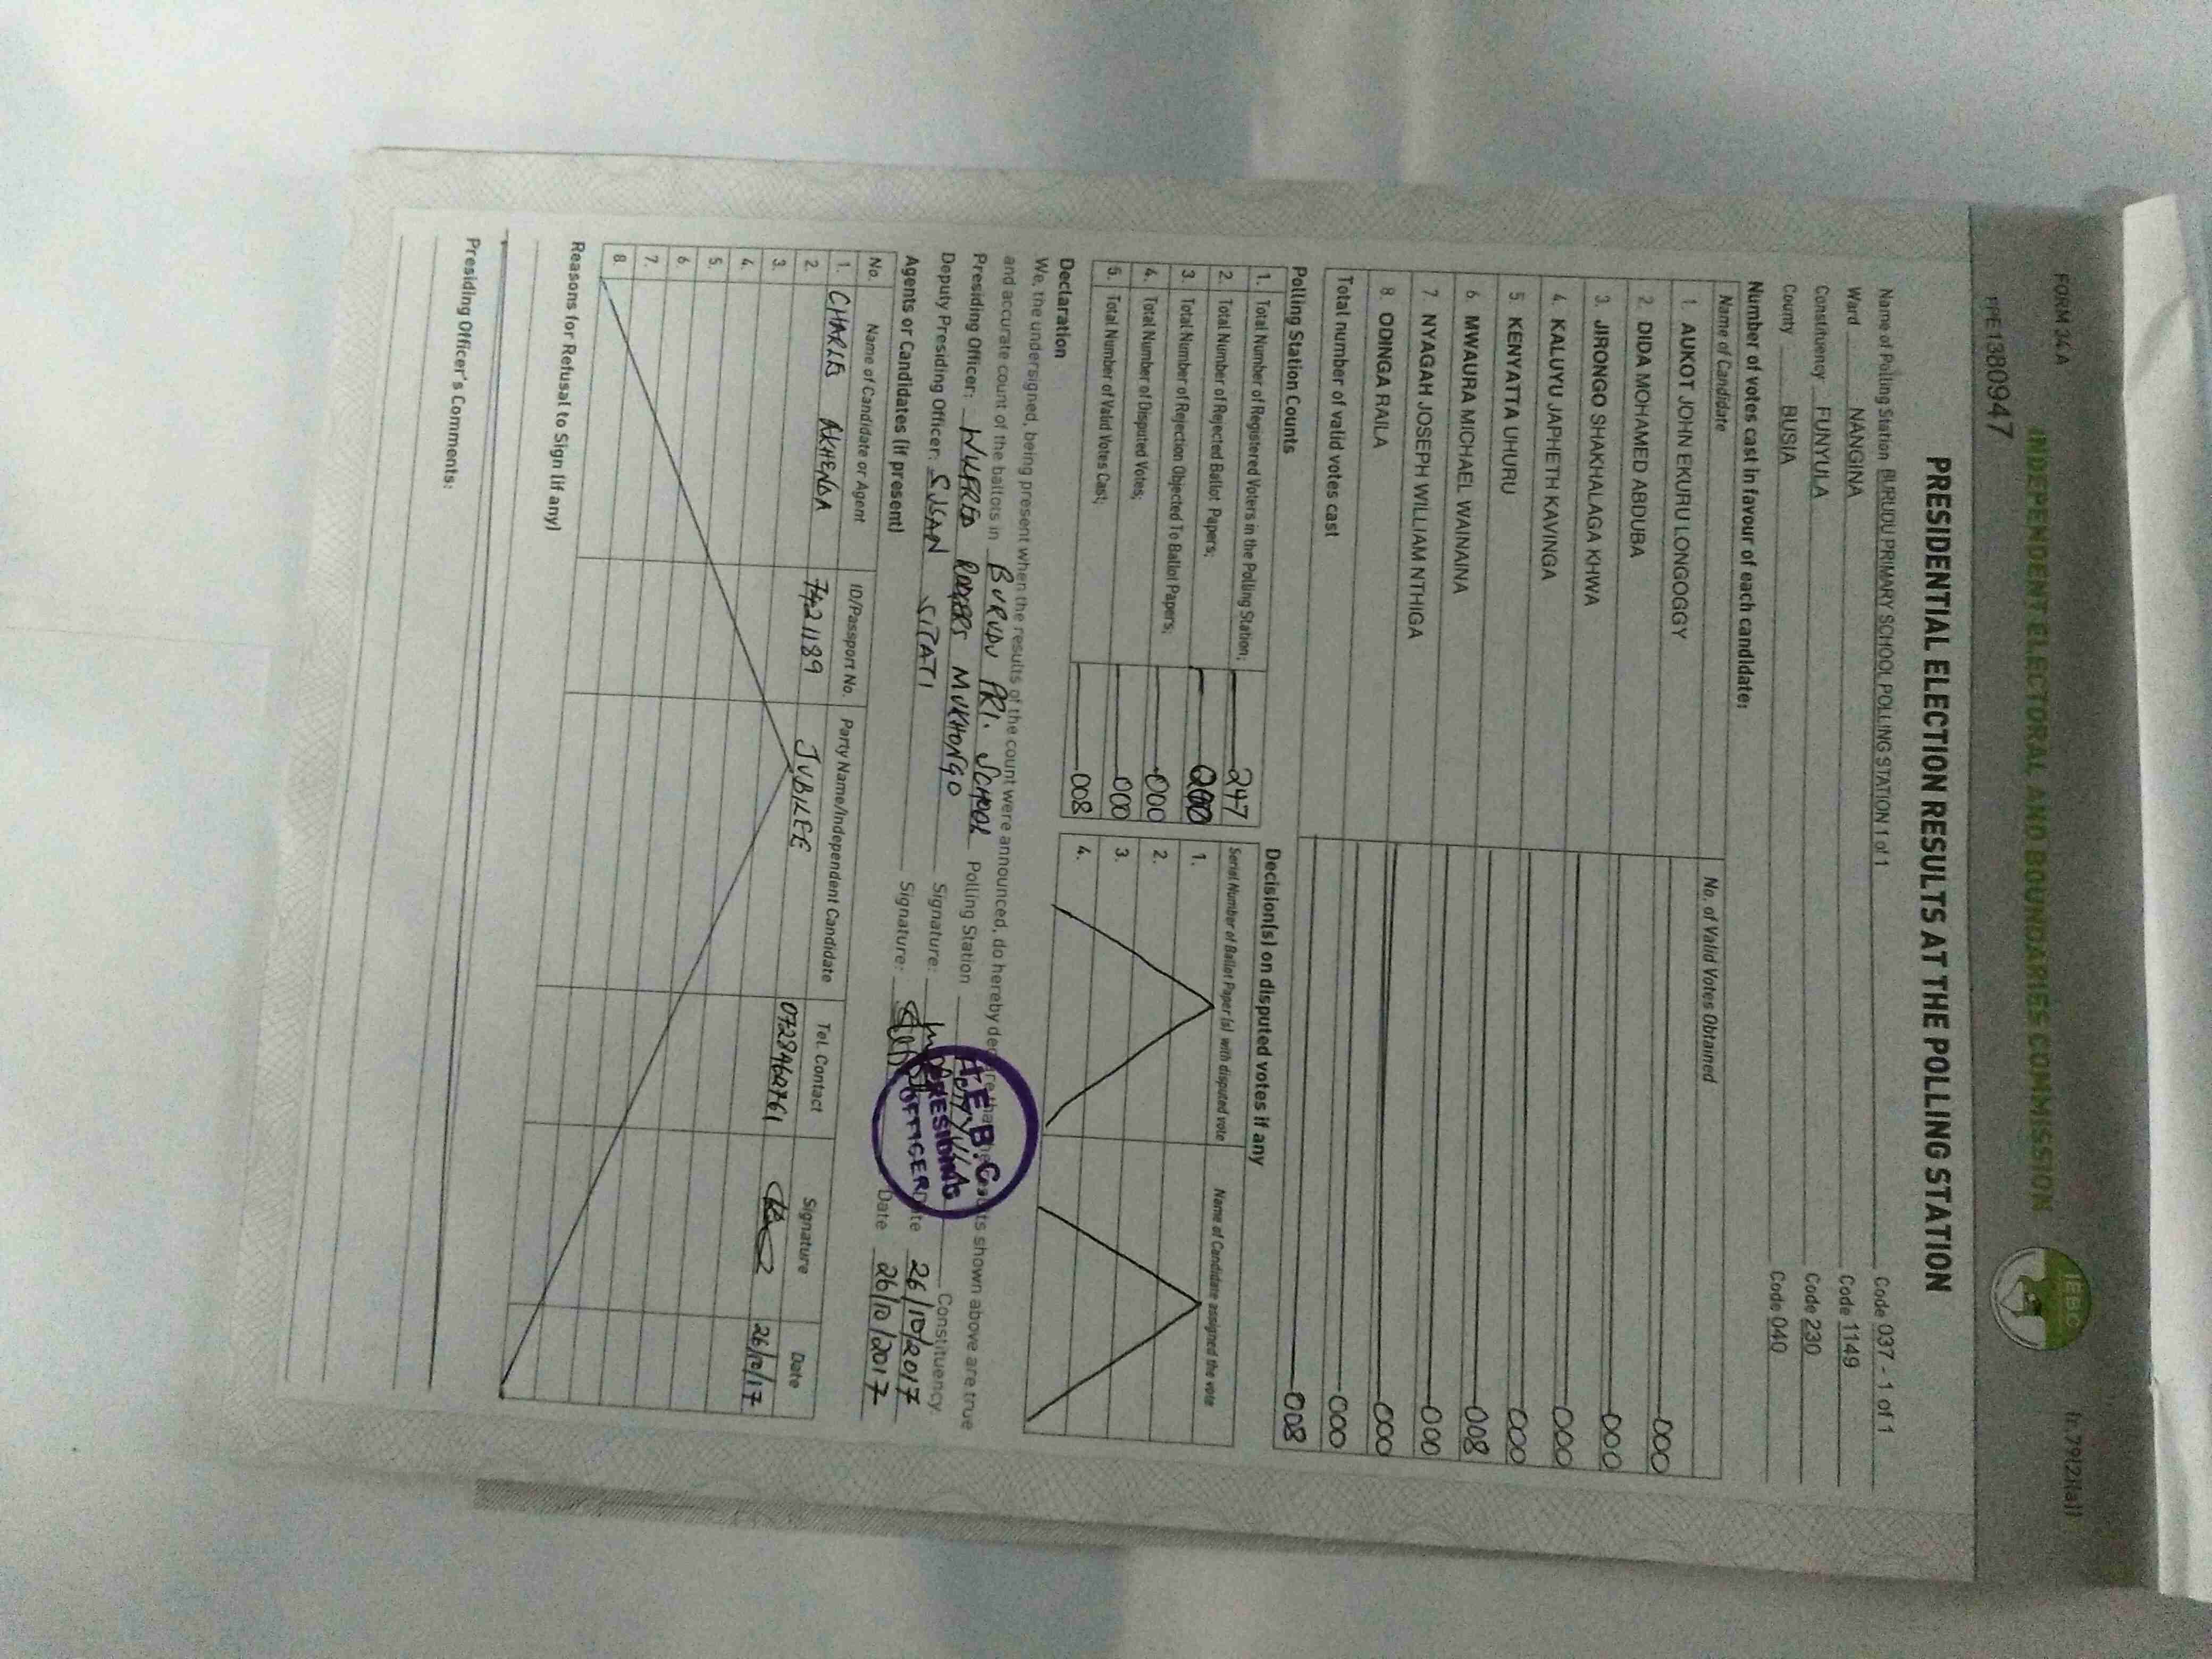 FORM 34A
(r.79(2)(a))
INDEPENDENT ELECTORAL AND BOUNDARIES COMMISSION
IEBC
PPE1380947
PRESIDENTIAL ELECTION RESULTS AT THE POLLING STATION
Name of Polling Station BURUDU PRIMARY SCHOOL POLLING STATION 1 of 1 Code 037 - 1 of 1
Ward NANGINA Code 1149
Constituency FUNYULA Code 230
County BUSIA Code 040
Number of votes cast in favour of each candidate:
Name of Candidate No. of Valid Votes Obtained
1. AUKOT JOHN EKURU LONGOGGY 000
2. DIDA MOHAMED ABDUBA 000
3. JIRONGO SHAKHALAGA KHWA 000
4. KALUYU JAPHETH KAVINGA 000
5. KENYATTA UHURU 008
6. MWAURA MICHAEL WAINAINA 000
7. NYAGAH JOSEPH WILLIAM NTHIGA 000
8. ODINGA RAILA 000
Total number of valid votes cast 008
Polling Station Counts
1. Total Number of Registered Voters in the Polling Station; 247
2. Total Number of Rejected Ballot Papers;
3. Total Number of Rejection Objected To Ballot Papers; 000
4. Total Number of Disputed Votes; 000
5. Total Number of Valid Votes Cast; 008
Decision(s) on disputed votes if any
Serial Number of Ballot Paper (s) with disputed vote Name of Candidate assigned the vote
1.
2.
3.
4.
Declaration
We, the undersigned, being present when the results of the count were announced, do hereby declare that the results shown above are true
and accurate count of the ballots in BURUDU PRI. SCHOOL Polling Station FUNYULA Constituency.
Presiding Officer: RODGERS MUKHONGO Signature: Date 26/10/2017
Deputy Presiding Officer: SUSAN SITATI Signature: Date 26/10/2017
I.E.B.C
PRESIDING
OFFICER
Agents or Candidates (if present)
No. Name of Candidate or Agent ID/Passport No. Party Name/Independent Candidate Tel. Contact Signature Date
1. CHARLES AKHENDA 7421189 JUBILEE 0728469761 26/10/17
2.
3.
4.
5.
6.
7.
8.
Reasons for Refusal to Sign (if any)
Presiding Officer's Comments: